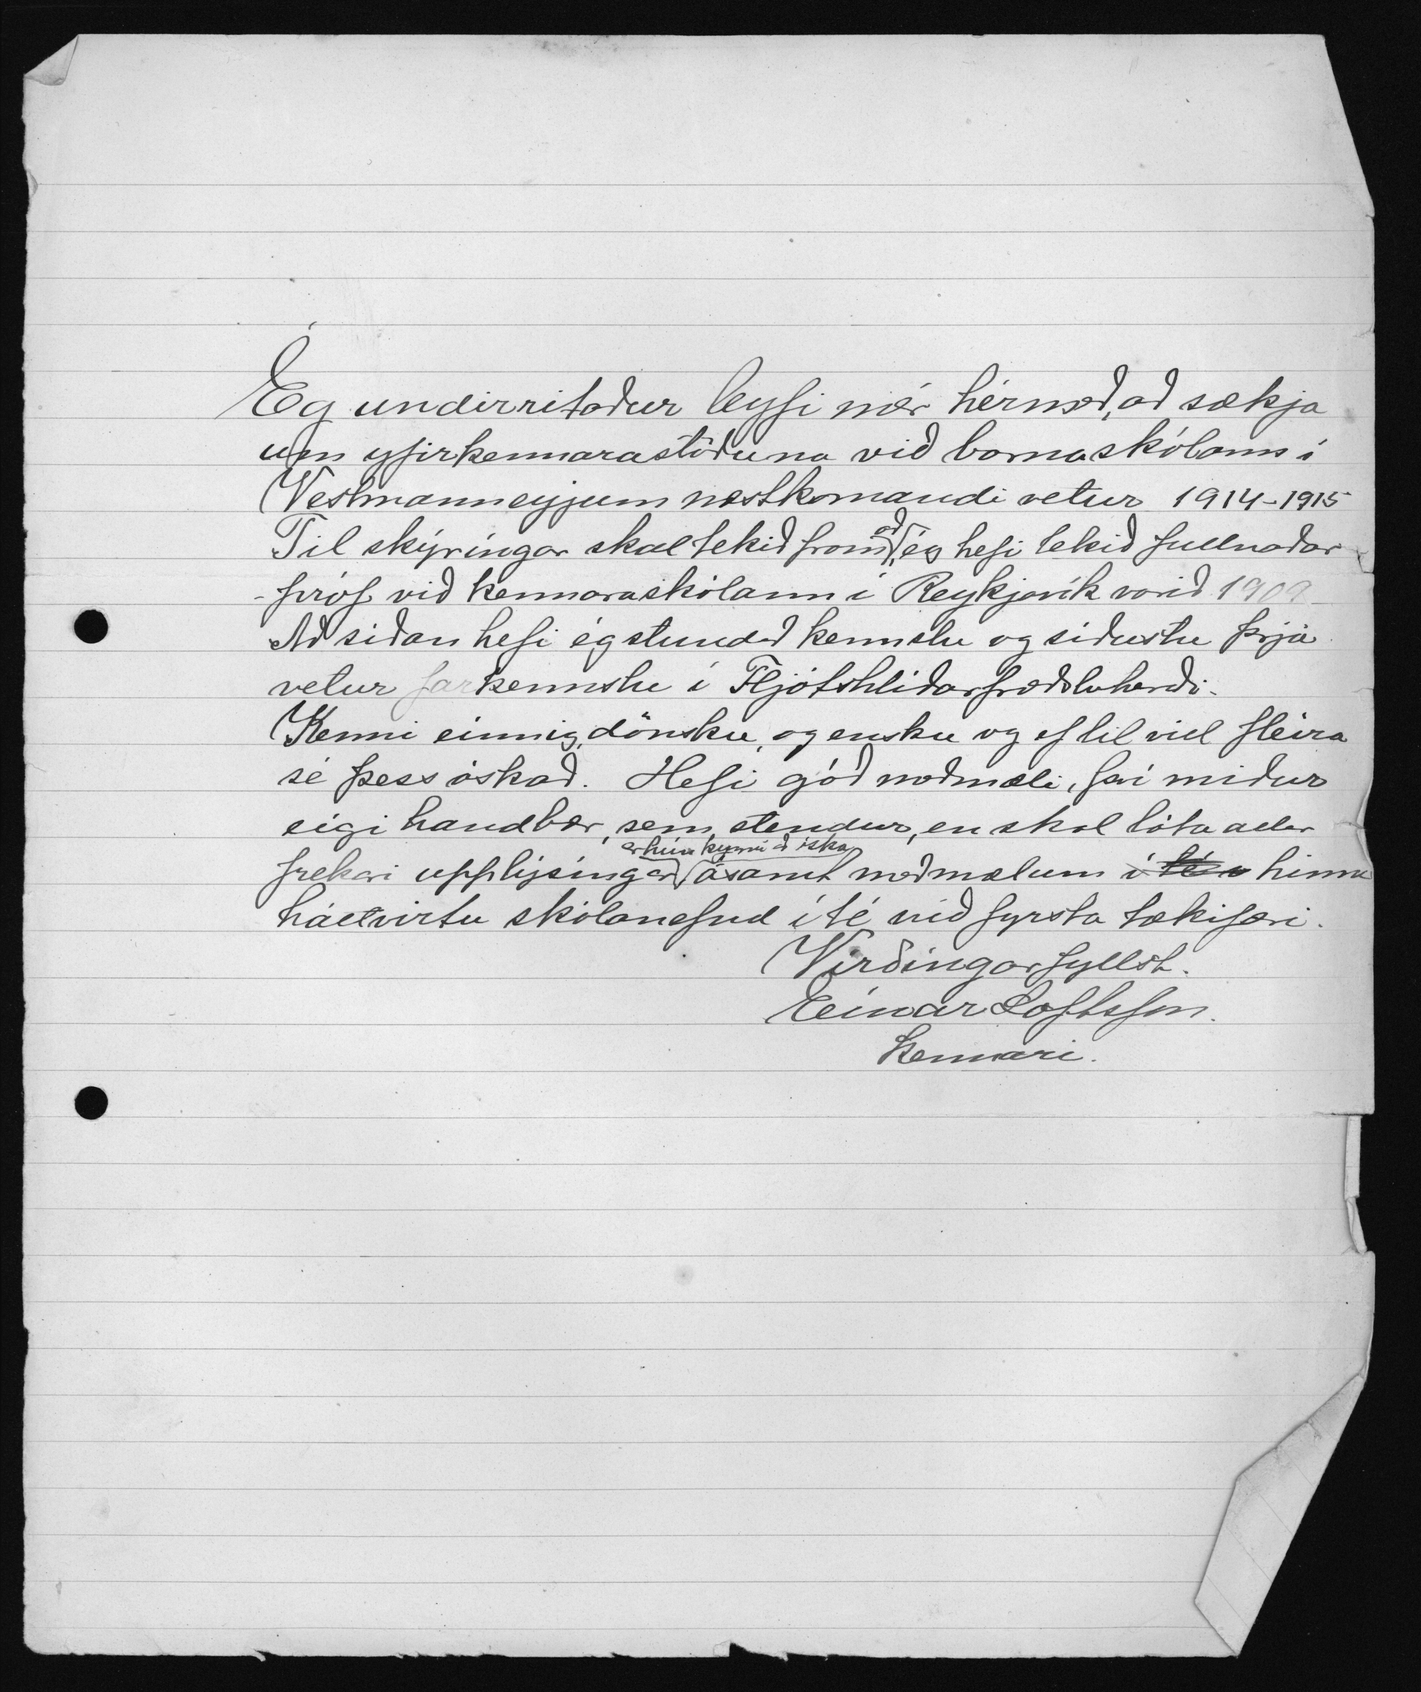 Ég undirritaður leyfi mér hérmeð, að sækja
um yfirkennarastöðuna við barnaskólann í
Vestmanneyjum næstkomandi vetur 1914-1915
Til skýringar skal tekið fram að ég hefi tekið fullnaðar
próf við kennaraskólann í Reykjavík vorið 1909
Að síðan hefi ég stundað kennslu og síðustu þrjá
vetur farkennslu í Fljótshlíðarfræðsluheraði.
Kenni einnig, dönsku, og ensku og ef til vill fleira
sé þess óskað. Hefi góð meðmæli, því miður
eigi handbær, sem stendur, en skal láta allar
frekari upplýsingar er hún kynni að óska ásamt meðmælum í té hinni
háttvirtu skólanefnd í té við fyrsta tækifæri.
Virðingarfyllst.
Einar Loftsson.
kennari.